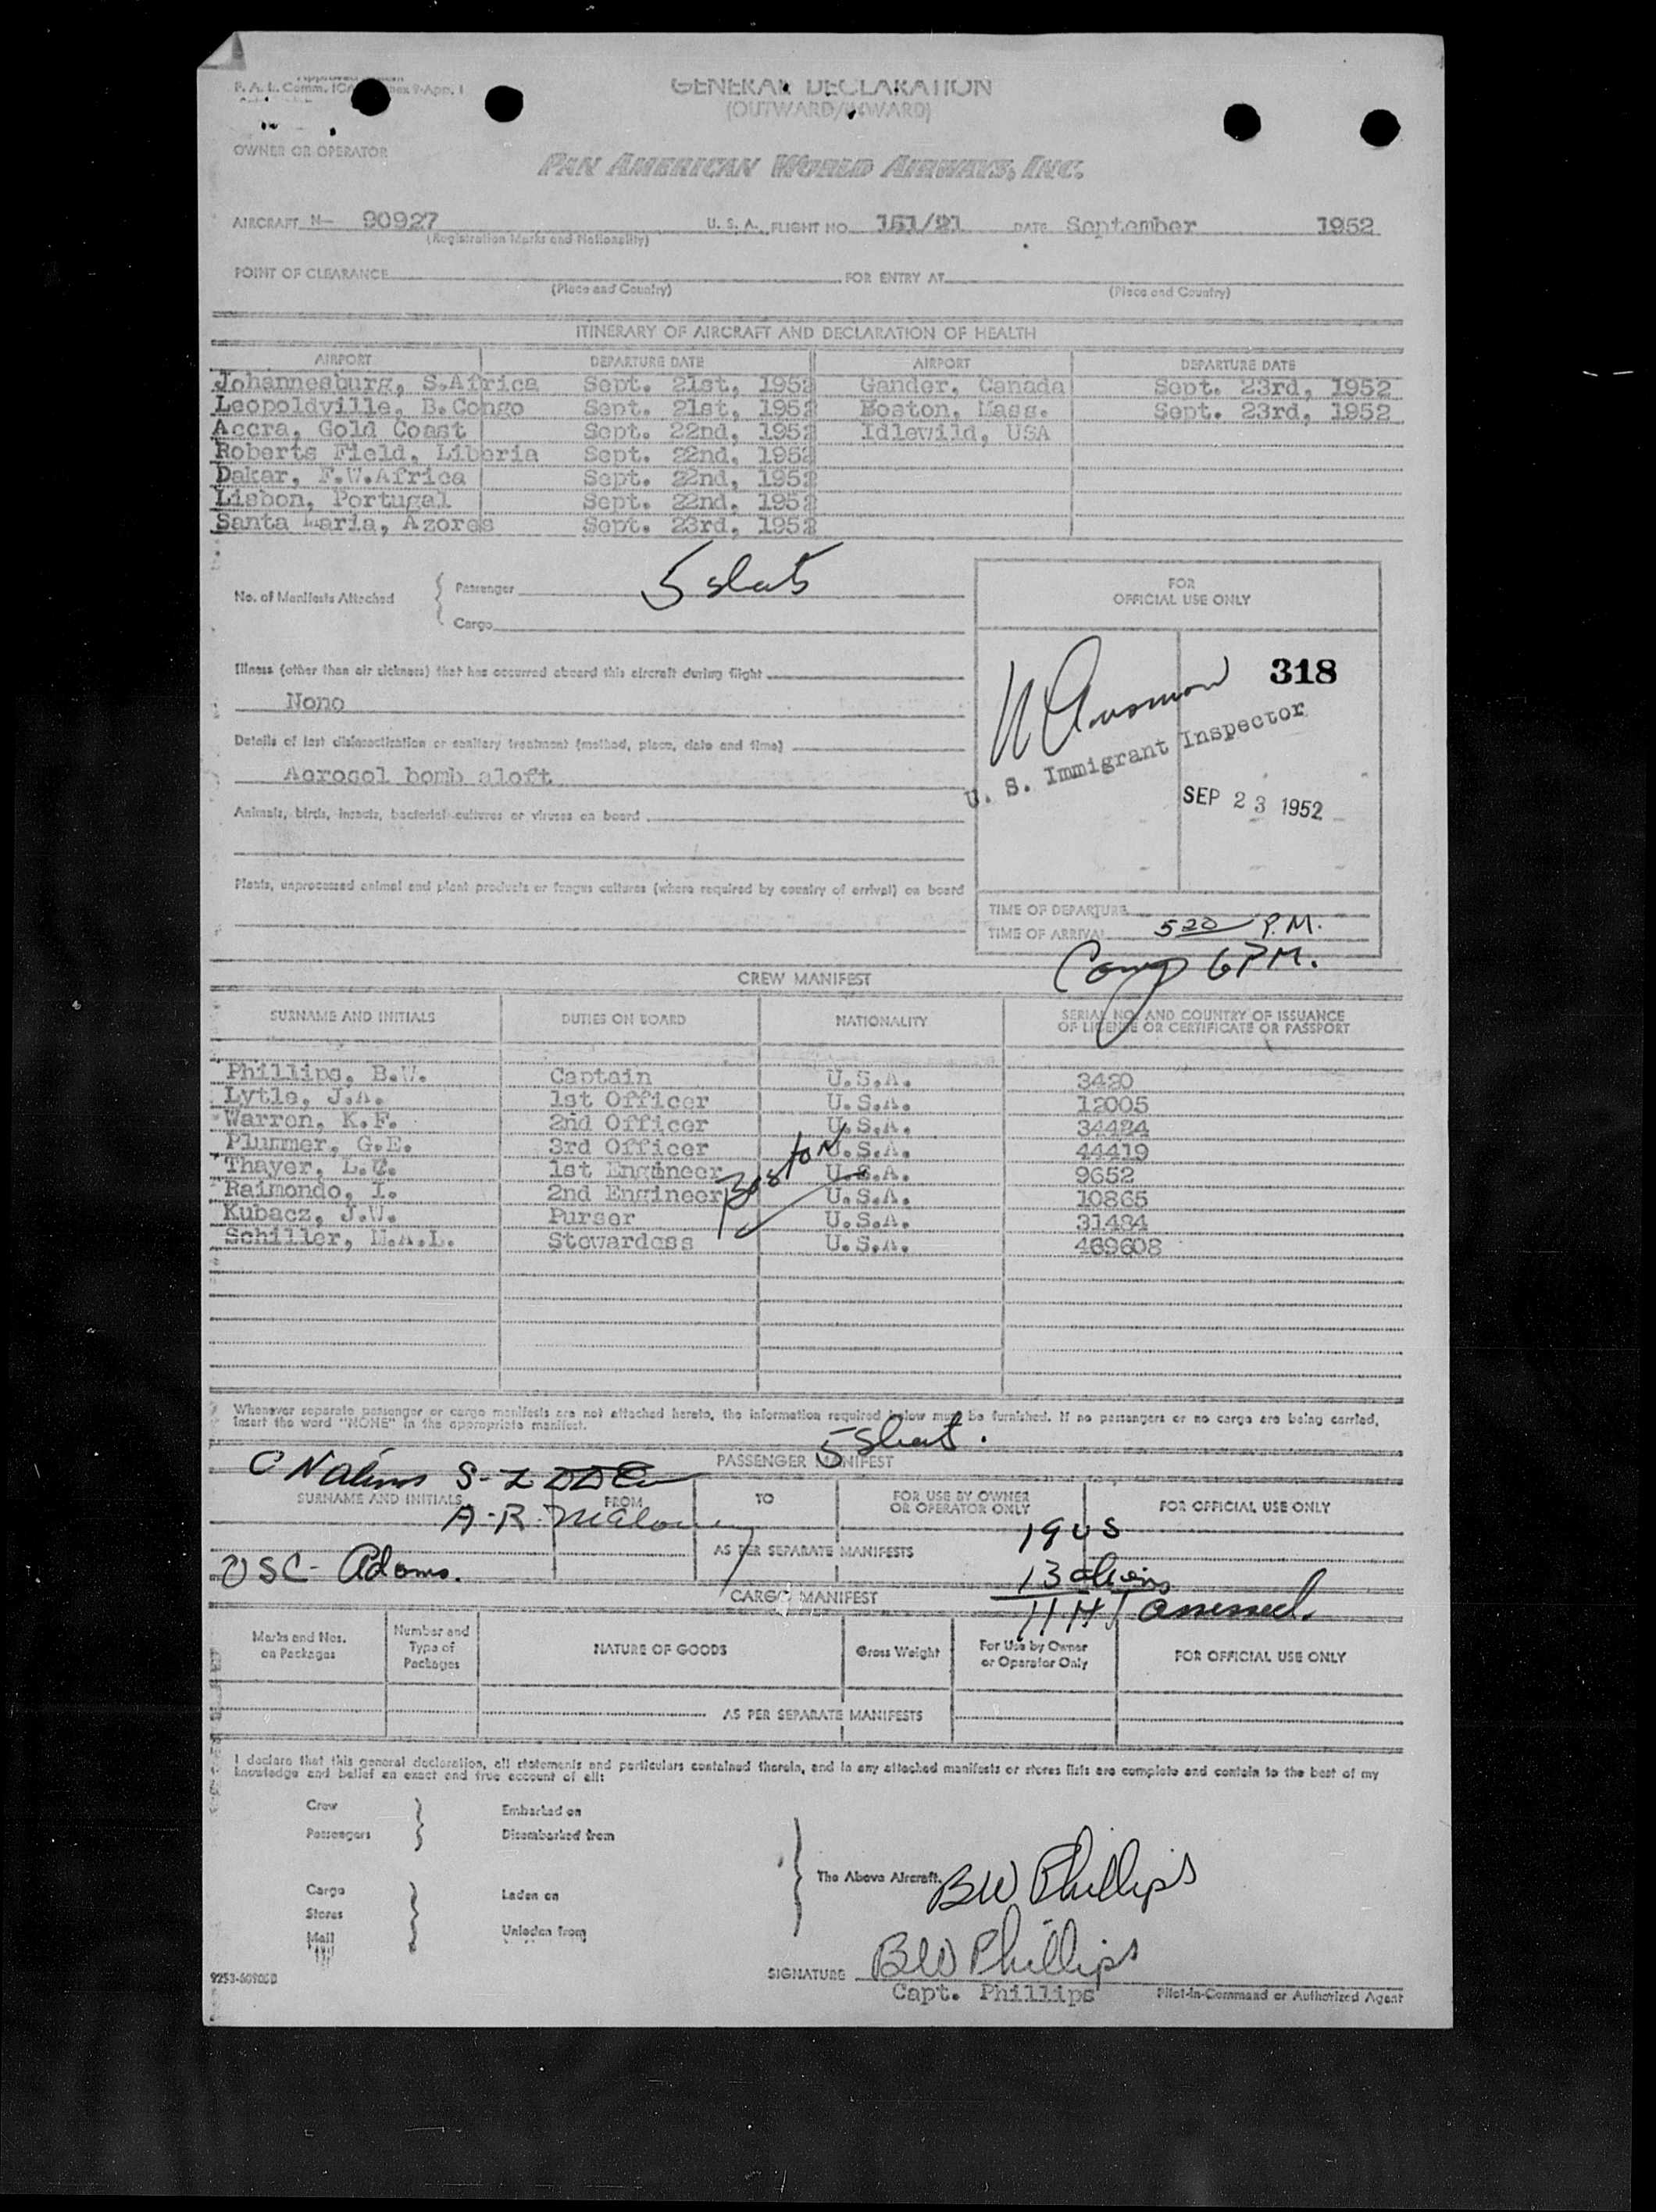 GENERAL DECLARATION
(OUTWARD/INWARD)
OWNER OR OPERATOR
PAN AMERICAN WORLD AIRWAYS, INC.
AIRCRAFT N- 90927 U. S. A. FLIGHT NO. 151/21 DATE September 1952
(Registration Marks and Nationality)
POINT OF CLEARANCE FOR ENTRY AT
(Place and Country) (Place and Country)
ITINERARY OF AIRCRAFT AND DECLARATION OF HEALTH
AIRPORT DEPARTURE DATE AIRPORT DEPARTURE DATE
Johannesburg, S.Africa Sept. 21st, 1952 Gander, Canada Sept. 23rd, 1952
Leopoldville, B.Congo Sept. 21st, 1952 Boston, Mass. Sept. 23rd, 1952
Accra, Gold Coast Sept. 22nd, 1952 Idlewild, USA
Roberts Field, Liberia Sept. 22nd, 1952
Dakar, F.W.Africa Sept. 22nd, 1952
Lisbon, Portugal Sept. 22nd, 1952
Santa Maria, Azores Sept. 23rd, 1952
No. of Manifests Attached
Passenger 5
Cargo
FOR
OFFICIAL USE ONLY
318
U. S. Immigrant Inspector
SEP 23 1952
Illness (other than air sickness) that has occurred aboard this aircraft during flight
None
Details of last disinsectization or sanitary treatment (method, place, date and time)
Aerosol bomb aloft
Animals, birds, insects, bacterial cultures or viruses on board
Plants, unprocessed animal and plant products or fungus cultures (where required by country of arrival) on board
TIME OF DEPARTURE
TIME OF ARRIVAL 5 20 P.M.
6 PM.
CREW MANIFEST
SURNAME AND INITIALS DUTIES ON BOARD NATIONALITY SERIAL NO. AND COUNTRY OF ISSUANCE
OF LICENSE OR CERTIFICATE OR PASSPORT
Phillips, B.W. Captain U.S.A. 3420
Lytle, J.A. 1st Officer U.S.A. 12005
Warren, K.F. 2nd Officer U.S.A. 34424
Plummer, G.E. 3rd Officer U.S.A. 44419
Thayer, L.C. 1st Engineer U.S.A. 9652
Raimondo, I. 2nd Engineer U.S.A. 10865
Kubacz, J.W. Purser U.S.A. 31484
Schiller, M.A.L. Stewardess U.S.A. 469608
Boston
Whenever separate passenger or cargo manifests are not attached hereto, the information required below must be furnished. If no passengers or no cargo are being carried,
insert the word "NONE" in the appropriate manifest.
PASSENGER MANIFEST
SURNAME AND INITIALS FROM TO FOR USE BY OWNER
OR OPERATOR ONLY FOR OFFICIAL USE ONLY
AS PER SEPARATE MANIFESTS
19 US
13 aliens
USC - Adams.
CARGO MANIFEST
Marks and Nos.
on Packages
Number and
Type of
Packages
NATURE OF GOODS
Gross Weight
For Use by Owner
or Operator Only
FOR OFFICIAL USE ONLY
AS PER SEPARATE MANIFESTS
I declare that this general declaration, all statements and particulars contained therein, and in any attached manifests or stores lists are complete and contain to the best of my
knowledge and belief an exact and true account of all:
Crew Embarked on
Passengers Disembarked from
The Above Aircraft.
BW Phillips
Cargo Laden on
Stores
Mail Unladen from
SIGNATURE BW Phillips
Capt. Phillips Pilot-in-Command or Authorized Agent